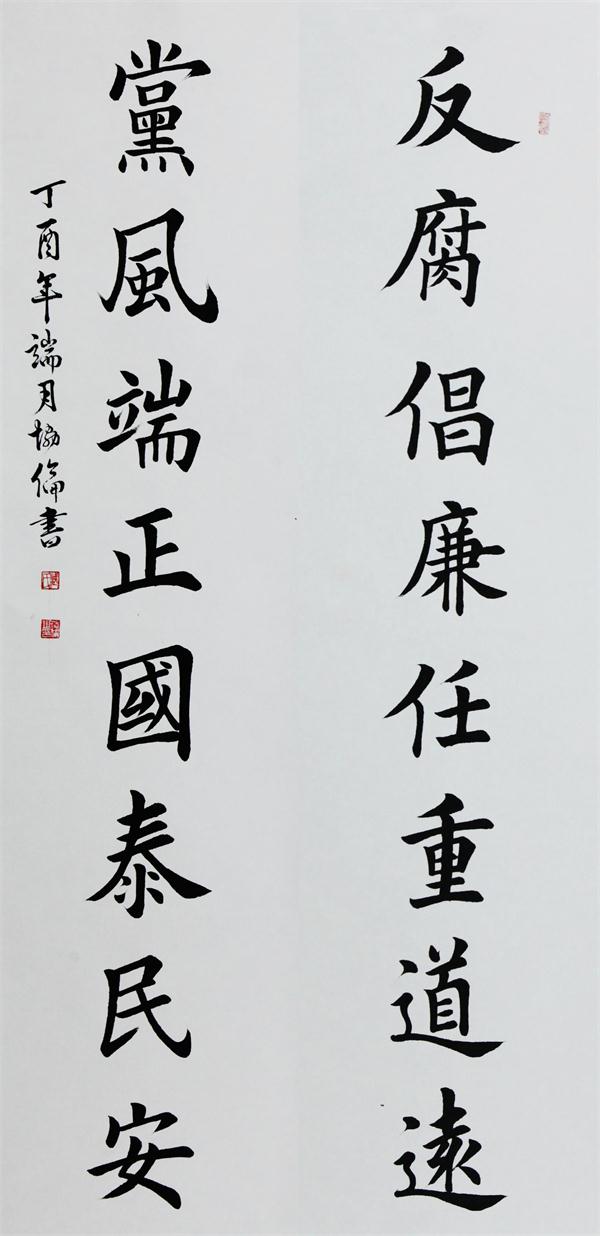 反腐倡廉任重道遠
黨風端正國泰民安
丁酉年端月協倫書